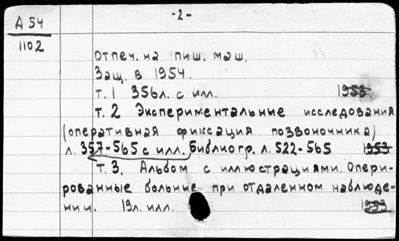 -2-
А 54
1102
Отпеч. на пиш. маш.
Защ. в 1954.
т. 1 356л. с илл. 1953
т. 2 Экспериментальные исследования
(оперативная фиксация позвоночника)
л. 357-565 с илл. Библиогр. л. 522-565 1953
т. 3. Альбом с иллюстрациями. Опери-
рованные больные при отдаленном наблюде-
нии. 19л. илл. 1953